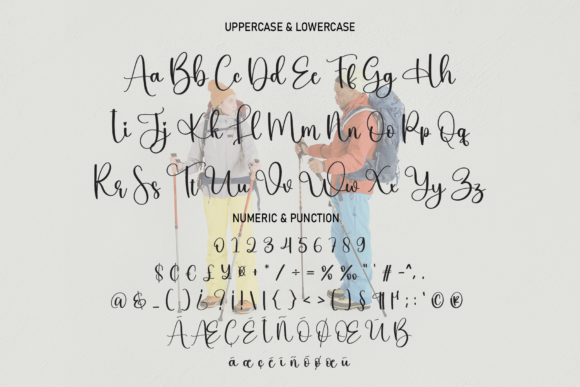 UPPERCASE & LOWERCASE
Aa Bb Cc Dd Ee Ff Gg Hh
Ii Jj Kk Ll Mm Nn Oo Pp Qq
Rr Ss Tt Uu Vv Ww Xx Yy Zz
NUMERIC & PUNCTION
0 1 2 3 4 5 6 7 8 9
+ * / ÷ = % ‰ " ' # - ^ , .
@ & _ ( ) ¿ ? ¡ ! \ | { } < > [ ] § ¶ ; : ' © ®